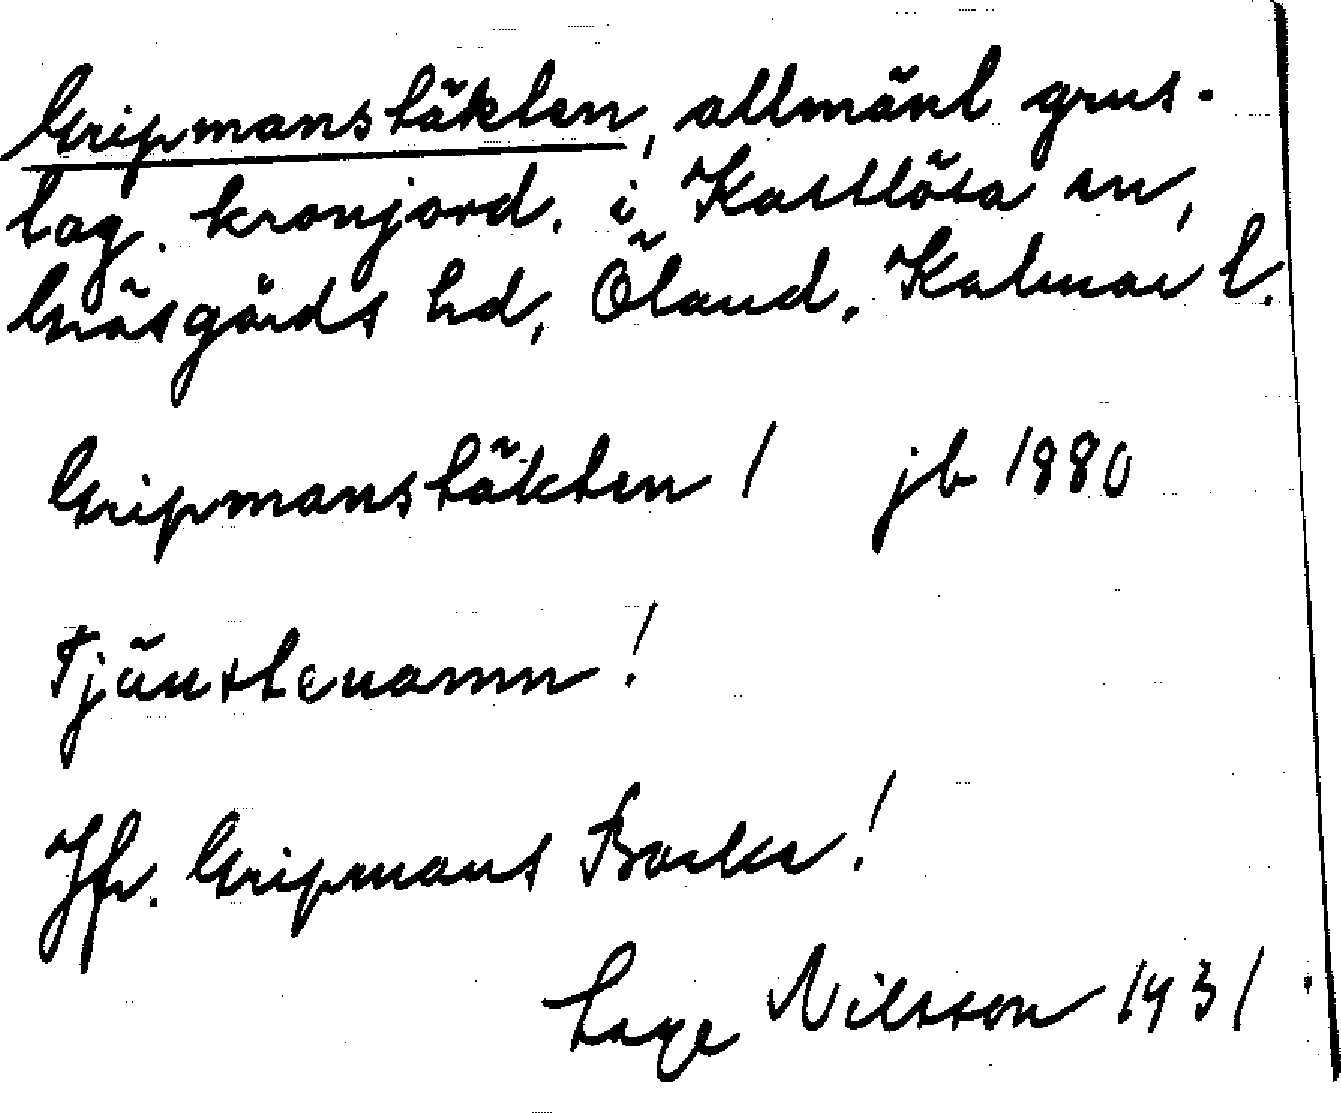 Gripmanstäkten, allmänt grus-
tag. kronjord. i Kastlösa sn,
Gräsgårds hd, Öland. Kalmar l.
Gripmanstäkten / jb 1880
Tjänstenamn!
Jfr. Gripmans Backe!
Lage Nilsson 1931.